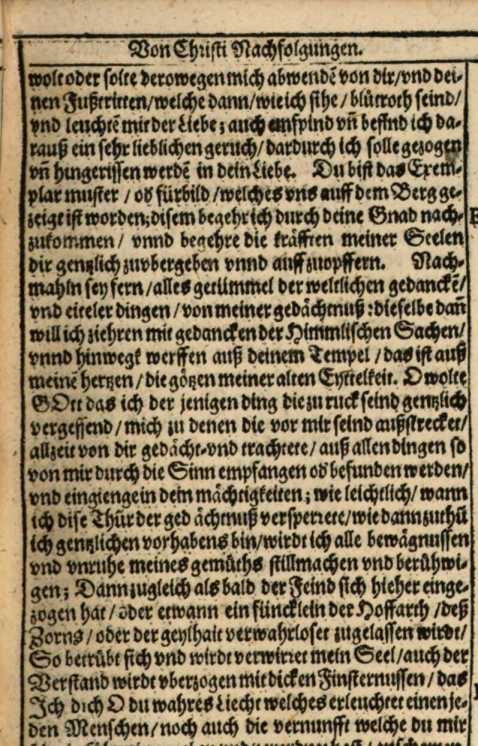 Von Christi Nachfolgungen.
wolt oder solte derowegen mich abwendē von dir/vnd dei-
nen Fußtritten/welche dann/wie ich sihe/blůtroth seind/
vnd leuchtē mit der Liebe; auch empfind vn̄ befind ich da-
rauß ein sehr lieblichen geruch/dardurch ich solle gezogen
vn̄ hungerissen werdē in dein Liebe. Du bist das Exem-
plar muster/od fürbild/welches vns auff dem Berg ge-
zeigt ist worden; disem begehr ich durch deine Gnad nach-
zukommen/ vnnd begehre die kräfften meiner Seelen
dir gentzlich zuvbergeben vnnd auff zuopffern. Nach-
mahln sey fern/alles getümmel der weltlichen gedanckē/
vnd eiteler dingen/von meiner gedächtnuß: dieselbe dañ
will ich ziehren mit gedancken der Himmlischen Sachen/
vnnd hinwegk werffen auß deinem Tempel/das ist auß
meinē hertzen/die götzen meiner alten Eyttelkeit. O wolte
GOtt das ich der jenigen ding die zu ruck seind gentzlich
vergessend/mich zu denen die vor mir seind außstrecket/
allzeit von dir gedächt-vnd trachtete/auß allen dingen so
von mir durch die Sinn empfangen od befunden werden/
vnd eingienge in dein mächtigkeiten; wie leichtlich/wann
ich dise Thür der ged ächtnuß versperrete/wie dann zuthů
ich gentzlichen vorhabens bin/wirdt ich alle bewägnussen
vnd vnruhe meines gemüths stillmachen vnd berühwi-
gen; Dann zugleich als bald der Feind sich hieher einge-
zogen hat/oder etwann ein füncklein der Hoffarth/deß
Zorns/oder der geylhait verwahrloset zugelassen wirdt/
So betrübt sich vnd wirdt verwirret mein Seel/auch der
Verstand wirdt vberzogen mit dicken Finsternussen/das
Ich dich O du wahres Liecht welches erleuchtet einen je-
den Menschen/noch auch die vernunfft welche du mir